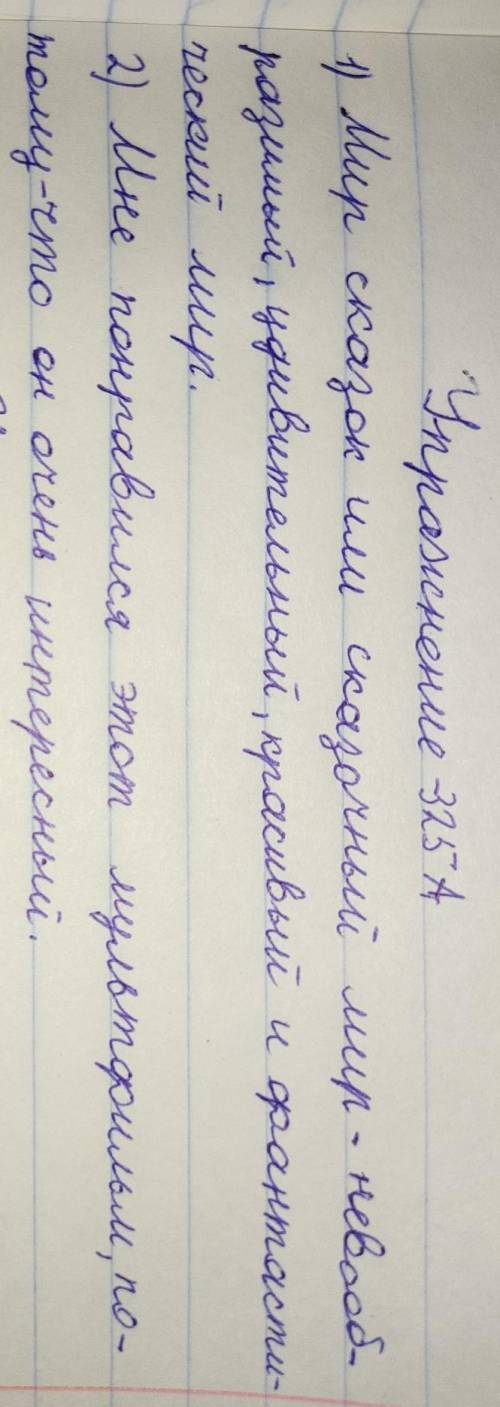 Упражнение 325 А
1) Мир сказок или сказочный мир - невооб-
разимый, удивительный, красивый и фантасти-
ческий мир.
2) Мне понравился этот мультфильм, по-
тому-что он очень интересный.